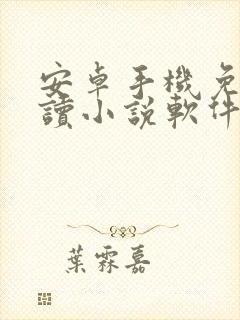 安卓手機免
讀小說軟件
葉霖嘉